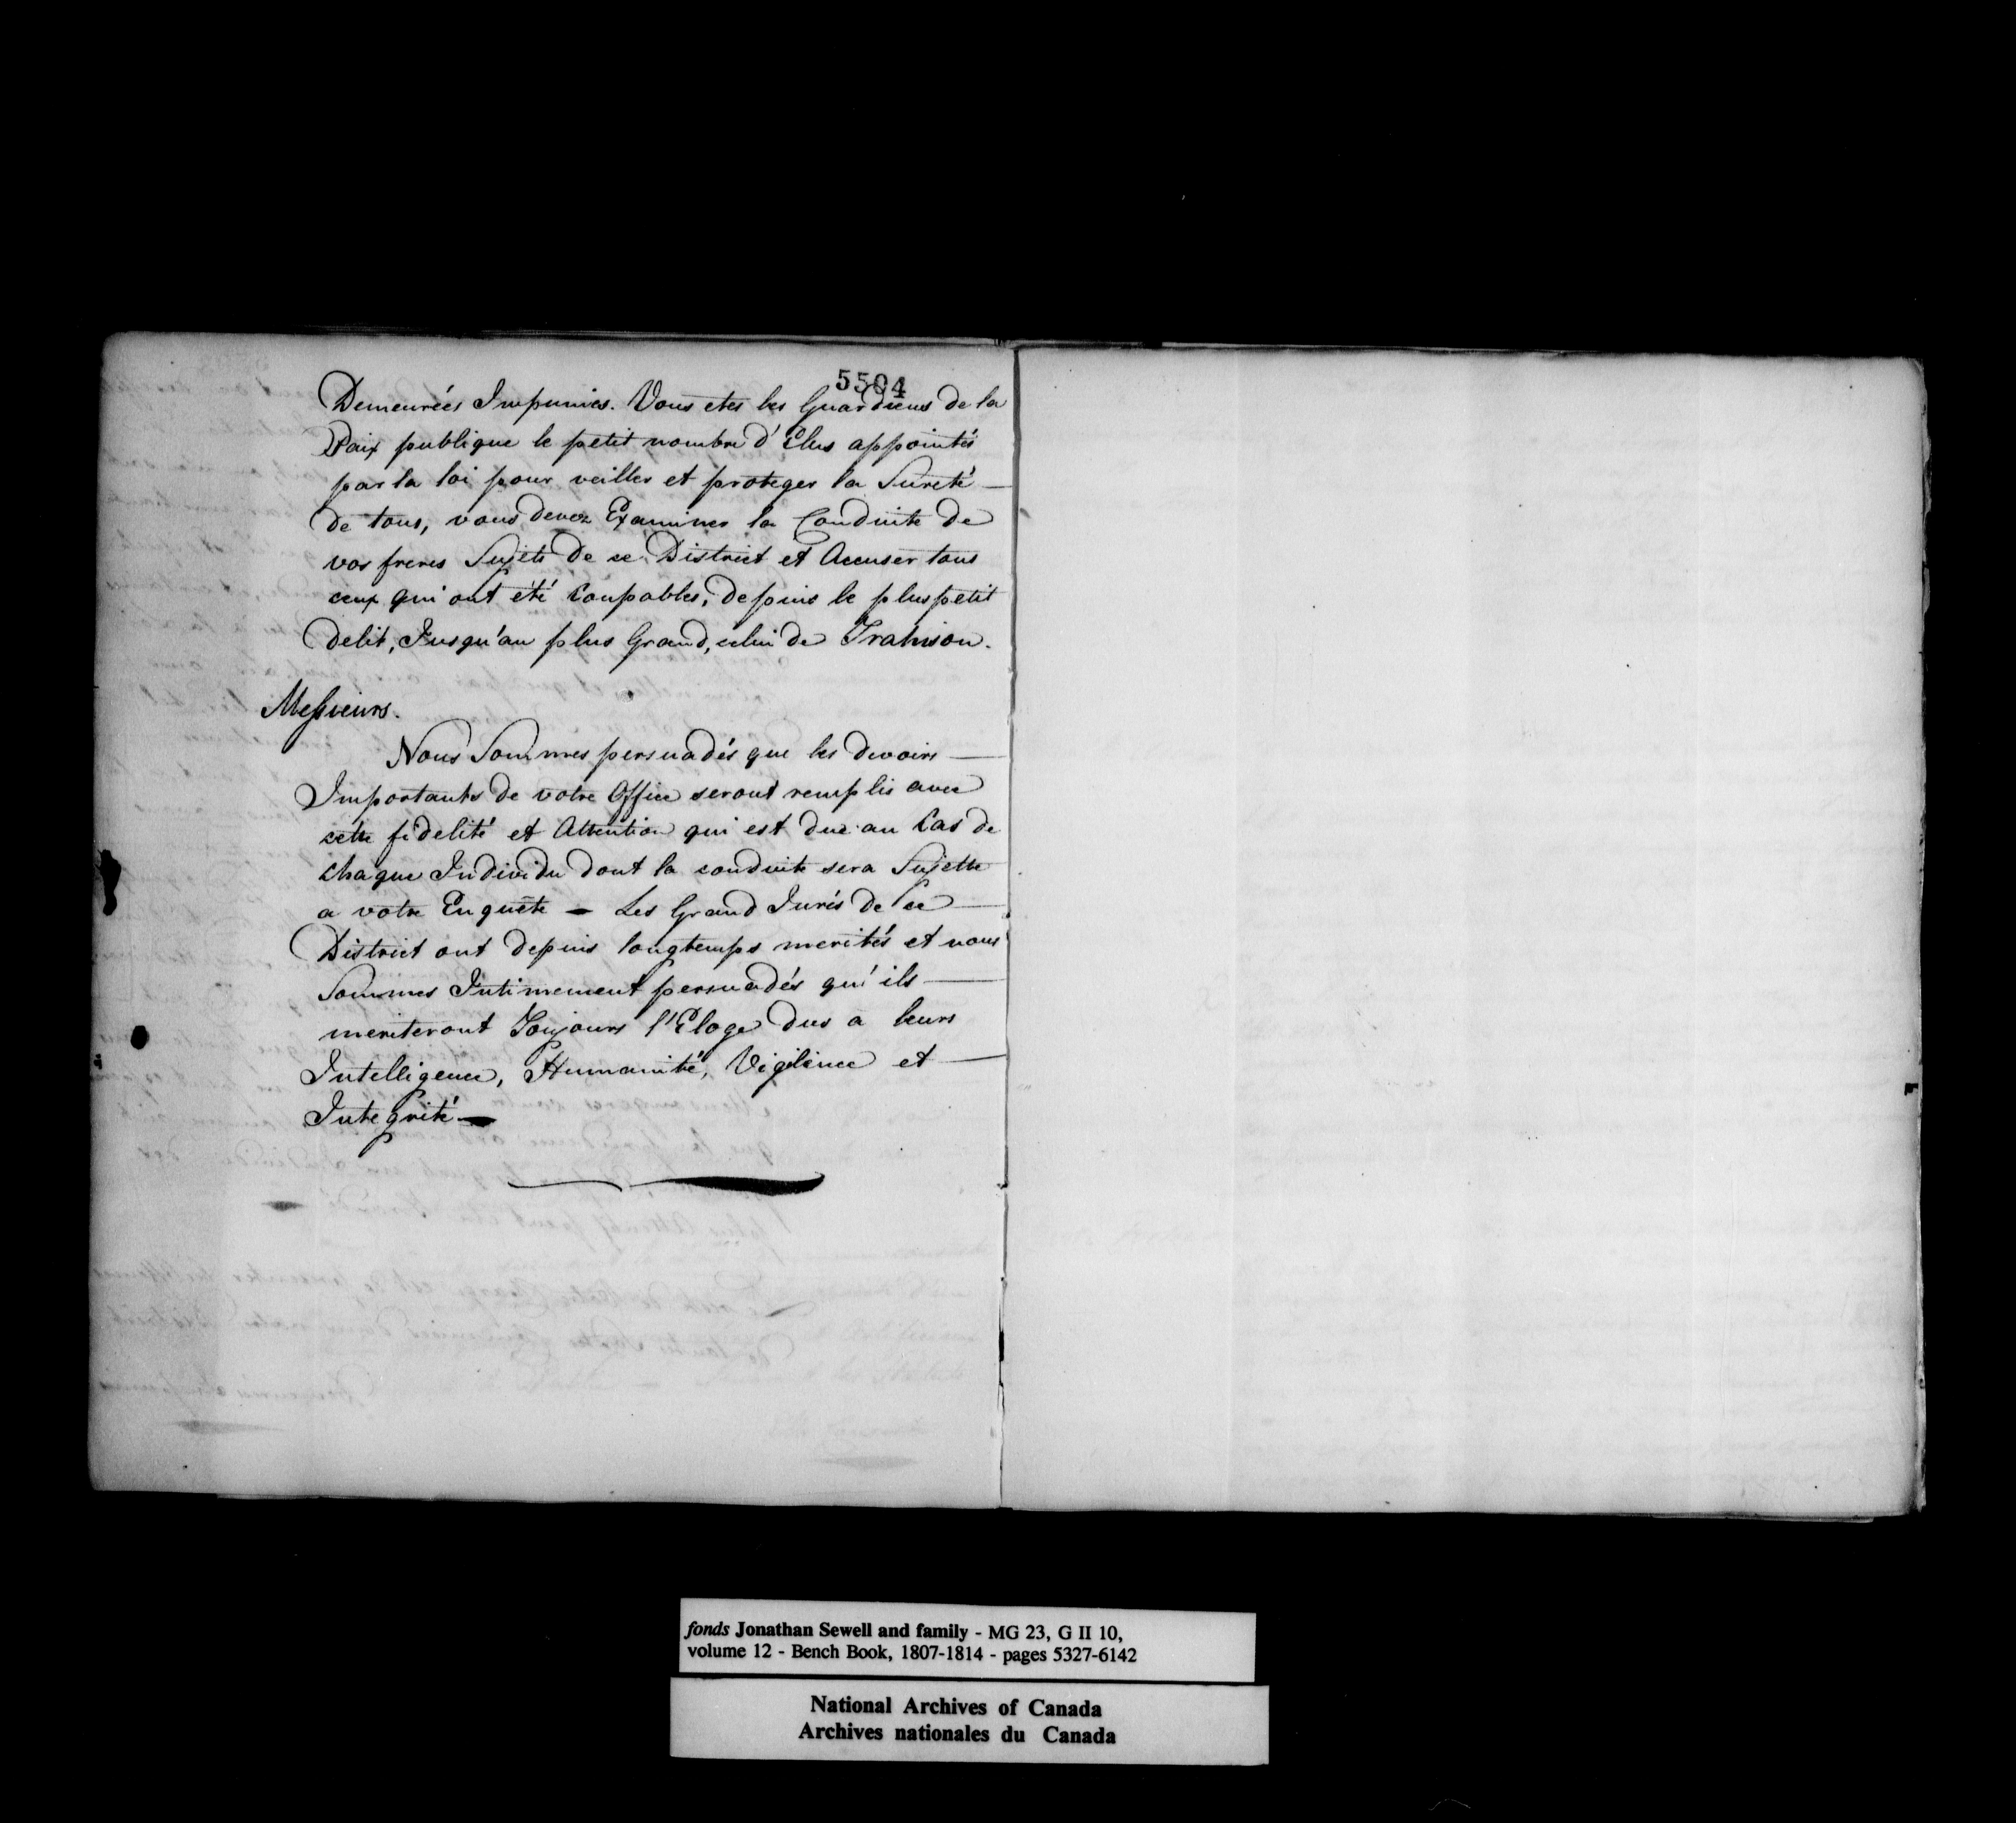 5504
Demeurées Impunies. Vous etes les Guardiens de la
Paix publique le petit nombre d'Elus appointés
par la loi pour veiller et proteger la Sureté —
de tous, vous devez Examiner la Conduite de
vos freres Sujets de ce District et Accuser tous
ceux qui ont été Coupables, depuis le plus petit
delit, Jusqu'au plus Grand, celui de Trahison.
Messieurs.
Nous Sommes persuadés que les devoirs —
Importants de votre Office seront remplis avec
cette fidelité et Attention qui est due au Cas de
chaque Individu dont la conduite sera Sujette
a votre Enquête — Les Grand Jurés de Ce —
District ont depuis longtemps merités et nous
Sommes Intimement persuadés qu'ils —
meriteront Toujours l'Eloge dus a leurs
Intelligence, Humanité, Vigilence et —
Integrité —
fonds Jonathan Sewell and family - MG 23, G II 10,
volume 12 - Bench Book, 1807-1814 - pages 5327-6142
National Archives of Canada
Archives nationales du Canada